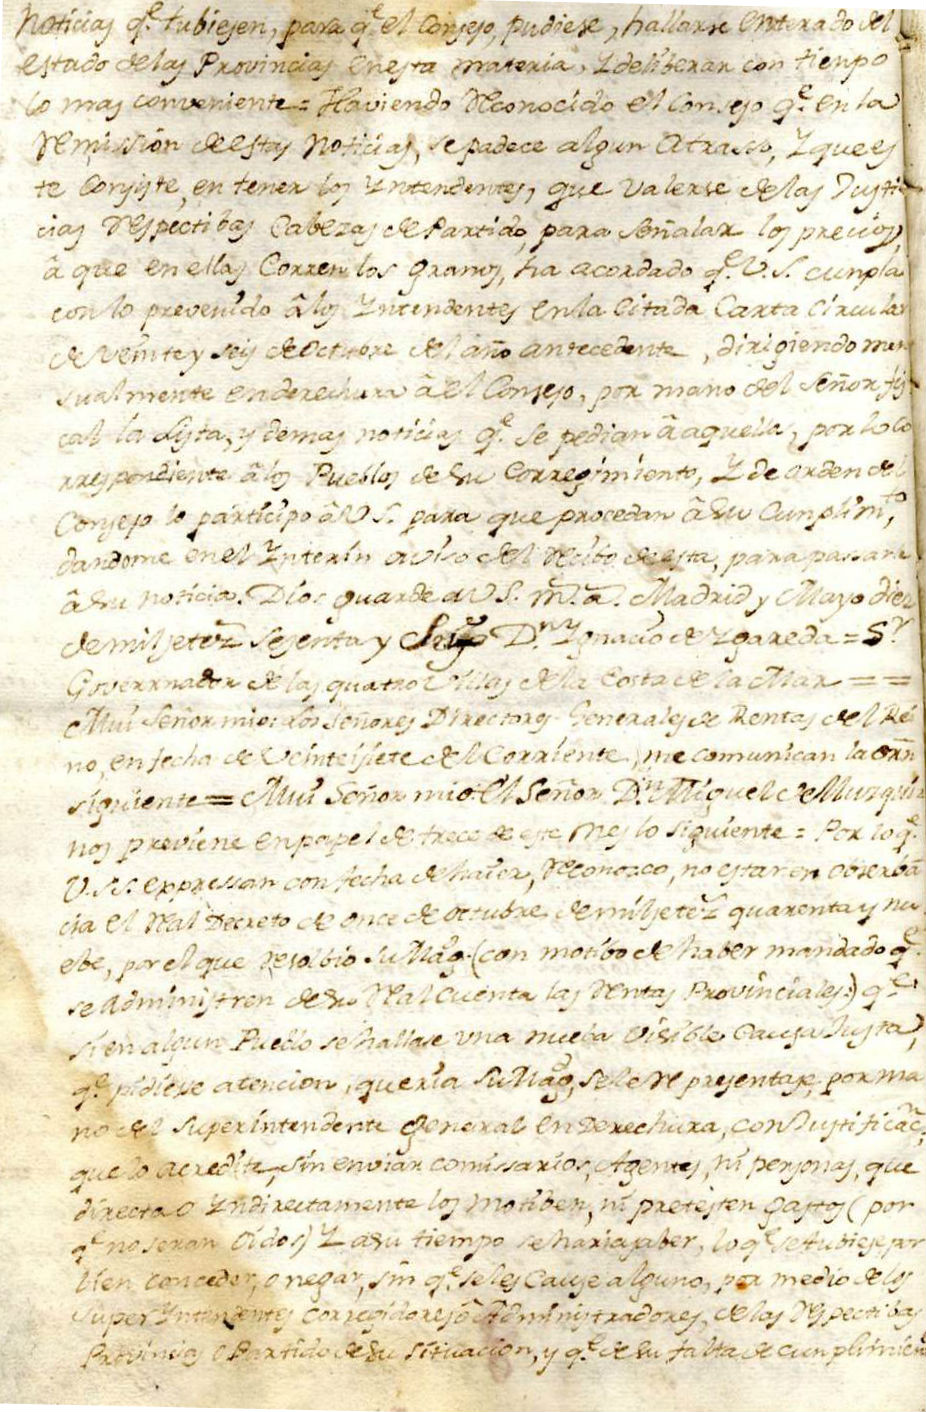 noticias q.e tubiesen, para q.e el Consejo, pudiese, hallarse enterado del
estado de las Provincias en esta materia, Y deliberar con tienpo
lo mas conveniente = Haviendo Reconocido el Consejo q.e en la
Remission de estas noticias, se padece algun atrasso, Y que es
te Consiste, en tener los Yntendentes, que valerse de las Justi
cias Respectibas Cabezas de Partido, para señalar los precios,
â que en ellas Corren los granos, ha acordado q.e V.S. cunpla
con lo prevenido â los Yntendentes en la Citada Carta Circular
de veinte y seis de Octubre del año antecedente, dirigiendo men
sualmente en derechura â el Consejo, por mano del señor fis
cal la Lista, y demas noticias q.e se pedian â aquella, por lo co
rrespondiente â los Pueblos de su Corregimiento, Y de orden del
Consejo lo participo â V S. para que procedan â su Cunplim.to,
dandome en el Ynterin aviso del Recibo de esta, para passarlo
â su noticia. Dios guarde a V S. m.s a.s Madrid y Mayo diez
de mil setez.s sesenta y D.n Ygnacio de Ygareda = S.r
Governador de las quatro Villas de la Costa de la Mar = =
Mui señor mio: los señores Directores Generales de Rentas del Rei
no, en fecha de veinte i siete del Corriente, me comunican la orn̄
siguiente = Mui señor mio: El Señor D.n Miguel de Muzquiz
nos previene en papel de trece de este mes lo siguiente = Por lo q.e
V.S.S. expressan con fecha de haier, Reconozco, no estar en obserbā
cia el Real Decreto de once de octubre de mil setez.s quarenta y nu
ebe, por el que Resolbio su Mag. (con motibo de haber mandado q.e
se administren de su Real Cuenta las Rentas Provinciales:) q.e
si en algun Pueblo se hallase una nueba visible Causa Justa,
q.e pidiese atencion, queria su Mag, se le Representase, por ma
no del superintendente general en Derechura, con Justificac.
que lo acredite, sin enviar comissarios, Agentes, ni personas, que
directa o Yndirectamente los motiben, ni pretesten gastos (por
q.e no seran Oidos) Y a su tiempo se haria saber, lo q.e se tubiese por
bien conceder, o negar, sin q.e se les Cause alguno, por medio de los
super Yntendentes Corregidores ô Administradores, de las Respectibas
Provincias o Partido de su situacion, y q.e de su falta de cunplimien